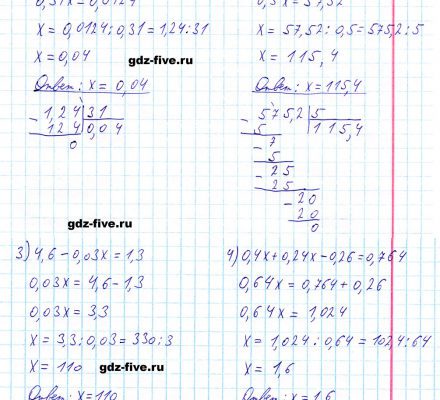 0,31x = 0,0124
x = 0,0124 : 0,31 = 1,24 : 31
x = 0,04
gdz-five.ru
Ответ: x = 0,04
- 1,24 | 31
124 | 0,04
0
0,5x = 57,52
x = 57,52 : 0,5 = 575,2 : 5
x = 115,4
Ответ: x = 115,4
- 575,2 | 5
5 | 115,4
- 7
5
- 25
25
- 20
20
0
gdz-five.ru
3) 4,6 - 0,03x = 1,3
0,03x = 4,6 - 1,3
0,03x = 3,3
x = 3,3 : 0,03 = 330 : 3
x = 110
gdz-five.ru
Ответ: x = 110
4) 0,4x + 0,24x - 0,26 = 0,764
0,64x = 0,764 + 0,26
0,64x = 1,024
x = 1,024 : 0,64 = 102,4 : 64
x = 1,6
Ответ: x = 1,6